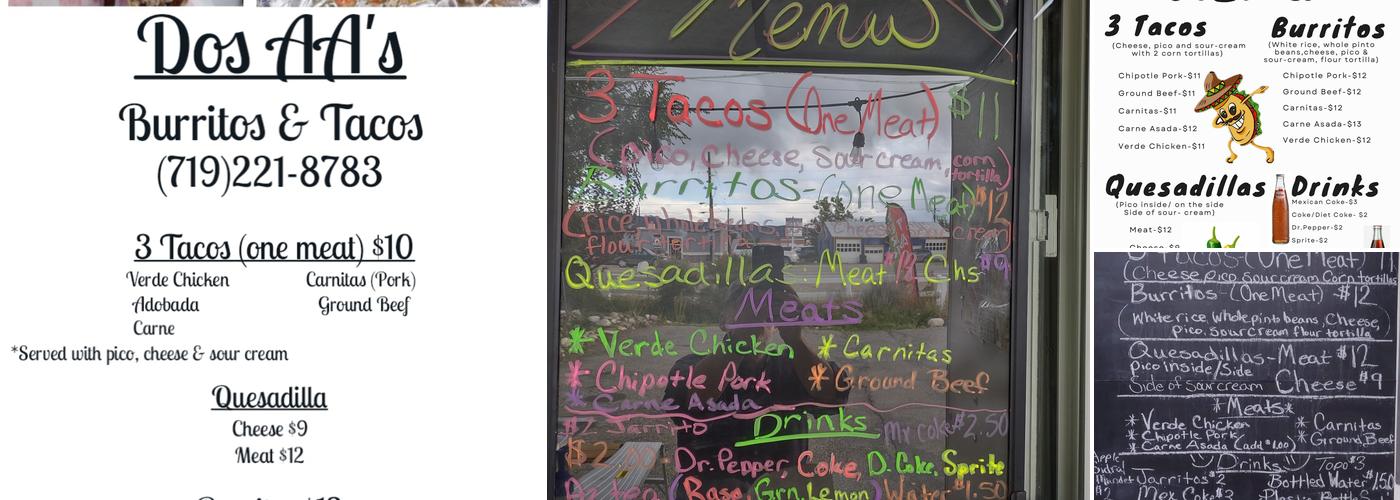 Dos AA's
Burritos & Tacos
(719)221-8783
3 Tacos (one meat) $10
Verde Chicken
Carnitas (Pork)
Adobada
Ground Beef
Carne
*Served with pico, cheese & sour cream
Quesadilla
Cheese $9
Meat $12
Menu
3 Tacos (One Meat) $11
(pico, Cheese, Sour cream, corn tortilla)
Burritos-(one Meat) $12
(rice whole beans, cheese, sour cream)
flour tortilla
Quesadillas: Meat $12 Chs $9
Meats
*Verde Chicken *Carnitas
*Chipotle Pork *Ground Beef
*Carne Asada
$2 Jarrito Drinks Mx Coke $2.50
Dr. Pepper, Coke, D. Coke, Sprite
(Rasp, Grn, Lemon) Water $1.50
3 Tacos
(Cheese, pico and sour-cream
with 2 corn tortillas)
Chipotle Pork-$11
Ground Beef-$11
Carnitas-$11
Carne Asada-$12
Verde Chicken-$11
Burritos
(White rice, whole pinto
beans,cheese, pico &
sour-cream, flour tortilla)
Chipotle Pork-$12
Ground Beef-$12
Carnitas-$12
Carne Asada-$13
Verde Chicken-$12
Quesadillas
(Pico inside/ on the side
Side of sour- cream)
Meat-$12
Cheese-$9
Drinks
Mexican Coke-$3
Coke/Diet Coke- $2
Dr.Pepper-$2
Sprite-$2
3 Tacos-(One Meat)
(Cheese, pico, sour cream Corn tortillas
Burritos-(One Meat)-$12
(White rice, whole pinto beans, Cheese,
pico, sour cream flour tortilla)
Quesadillas-Meat $12
pico inside/Side
Side of sour cream Cheese $9
*Meats*
*Verde Chicken *Carnitas
*Chipotle Pork *Ground Beef
*Carne Asada (add $1.00)
Drinks Topo $3
Jarritos $2 Bottled Water $1.50
Mex Coke $3